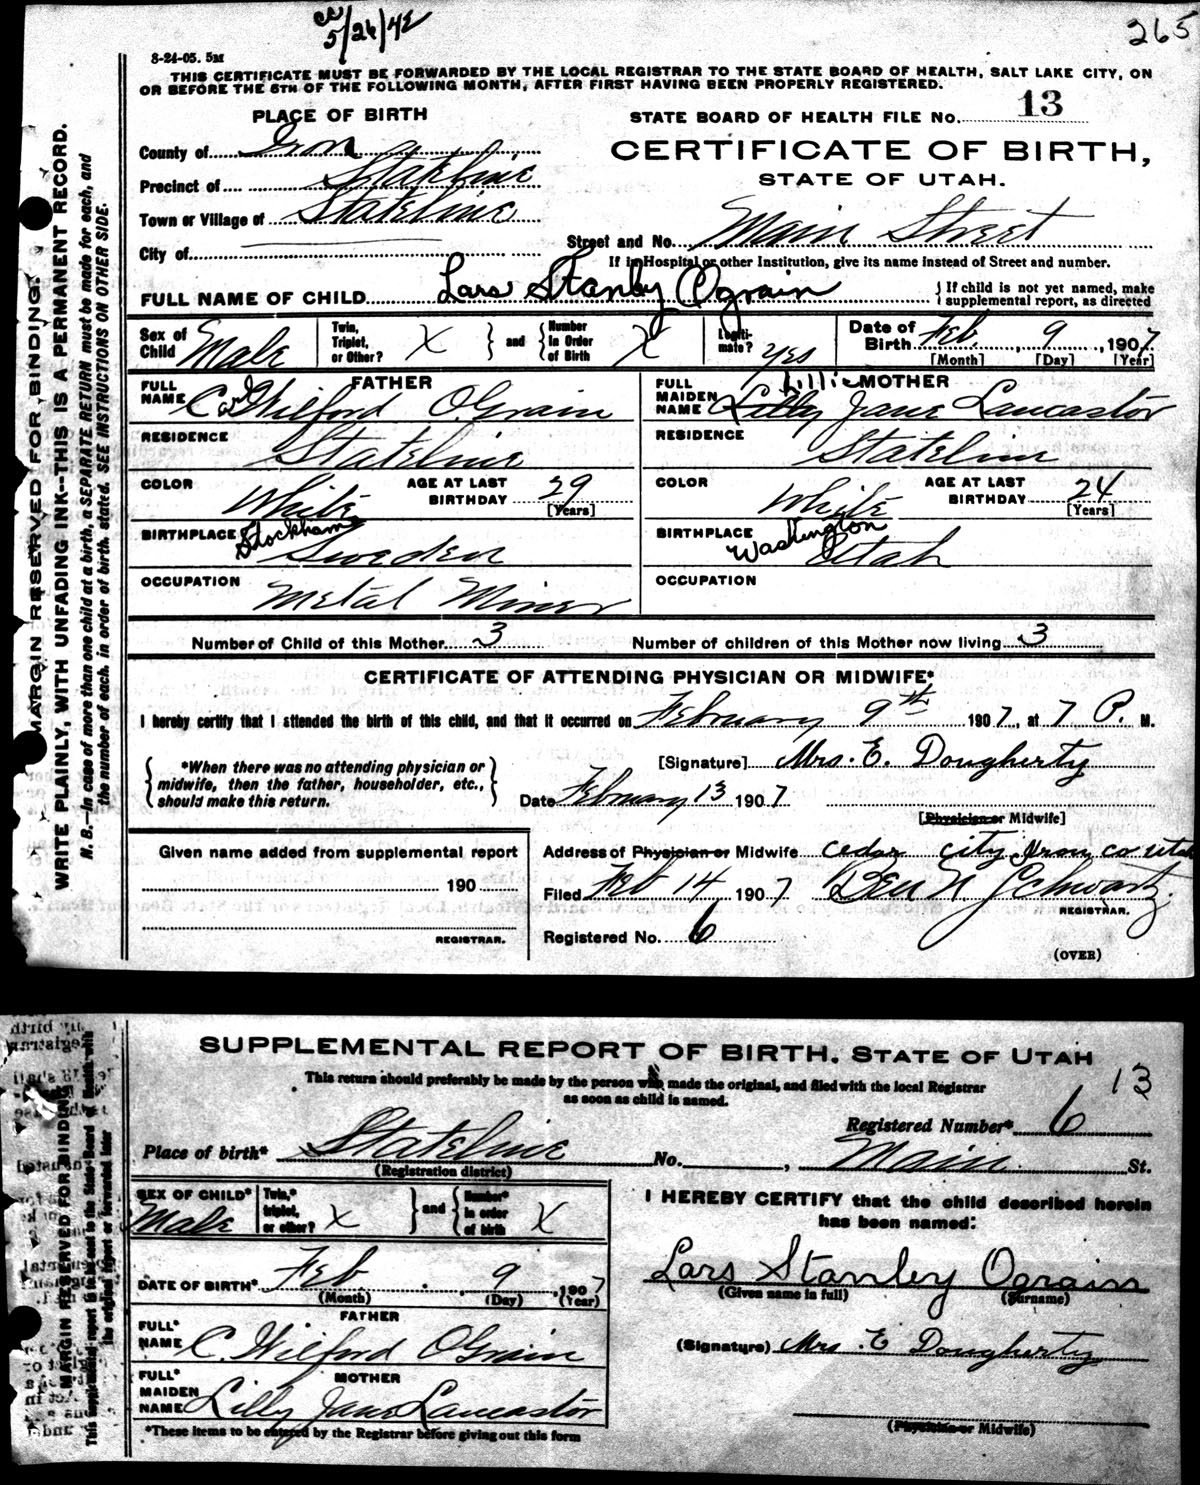 5/26/42
265
8-24-05. 5M
THIS CERTIFICATE MUST BE FORWARDED BY THE LOCAL REGISTRAR TO THE STATE BOARD OF HEALTH, SALT LAKE CITY, ON
OR BEFORE THE 5TH OF THE FOLLOWING MONTH, AFTER FIRST HAVING BEEN PROPERLY REGISTERED.
PLACE OF BIRTH
STATE BOARD OF HEALTH FILE NO. 13
County of Iron
CERTIFICATE OF BIRTH,
Precinct of Stateline
STATE OF UTAH.
Town or Village of Stateline
City of
Street and No. Main Street
If in Hospital or other Institution, give its name instead of Street and number.
FULL NAME OF CHILD Lars Stanley Ograin
{ If child is not yet named, make supplemental report, as directed
Sex of Child Male
Twin, Triplet, or Other? X } and { Number In Order of Birth X
Legitimate? yes
Date of Birth Feb. 9, 1907
[Month] [Day] [Year]
FATHER
FULL NAME C. Wilford OGrain
MOTHER
FULL MAIDEN NAME Lillie Lilly Jane Lancastor
RESIDENCE Stateline
RESIDENCE Stateline
COLOR White AGE AT LAST BIRTHDAY 29 [Years]
COLOR White AGE AT LAST BIRTHDAY 24 [Years]
BIRTHPLACE Stockham Sweden
BIRTHPLACE Washington Utah
OCCUPATION Metal Miner
OCCUPATION
Number of Child of this Mother 3
Number of children of this Mother now living 3
CERTIFICATE OF ATTENDING PHYSICIAN OR MIDWIFE*
I hereby certify that I attended the birth of this child, and that it occurred on February 9th 1907, at 7 P. M.
{ *When there was no attending physician or midwife, then the father, householder, etc., should make this return. }
[Signature] Mrs. E. Dougherty
Date February 13 1907
[Physician or Midwife]
Given name added from supplemental report
190
REGISTRAR.
Address of Physician or Midwife cedar city Iron co utah
Filed Feb 14 1907 Ben N Schwartz
REGISTRAR.
Registered No. 6
(OVER)
MARGIN RESERVED FOR BINDING.
WRITE PLAINLY, WITH UNFADING INK--THIS IS A PERMANENT RECORD.
N. B.—In case of more than one child at a birth, a SEPARATE RETURN must be made for each, and
the number of each, in order of birth, stated. SEE INSTRUCTIONS ON OTHER SIDE.
SUPPLEMENTAL REPORT OF BIRTH. STATE OF UTAH
This return should preferably be made by the person who made the original, and filed with the local Registrar
as soon as child is named.
13
Registered Number* 6
Place of birth* Stateline No. , Main St.
(Registration district)
SEX OF CHILD* Male
Twin,* triplet, or other? X } and { Number* in order of birth X
I HEREBY CERTIFY that the child described herein
has been named:
DATE OF BIRTH* Feb. 9, 1907
(Month) (Day) (Year)
Lars Stanley Ograin
(Given name in full) (Surname)
FATHER
FULL* NAME C. Wilford OGrain
(Signature) Mrs. E Dougherty
MOTHER
FULL* MAIDEN NAME Lilly Jane Lancastor
(Physician or Midwife)
*These items to be entered by the Registrar before giving out this form
MARGIN RESERVED FOR BINDING